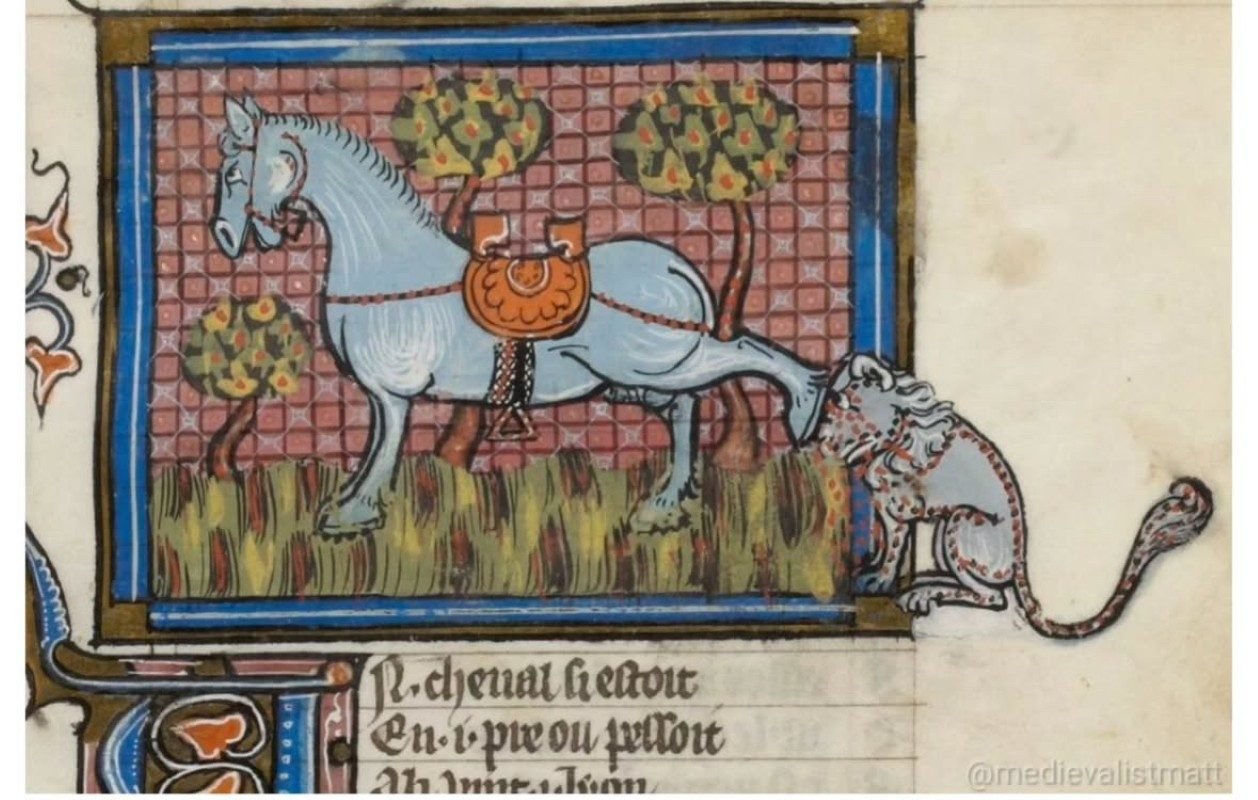 N. cheual si estoit
En .i. pre ou pessoit
uint .i. lyon
@medievalistmatt